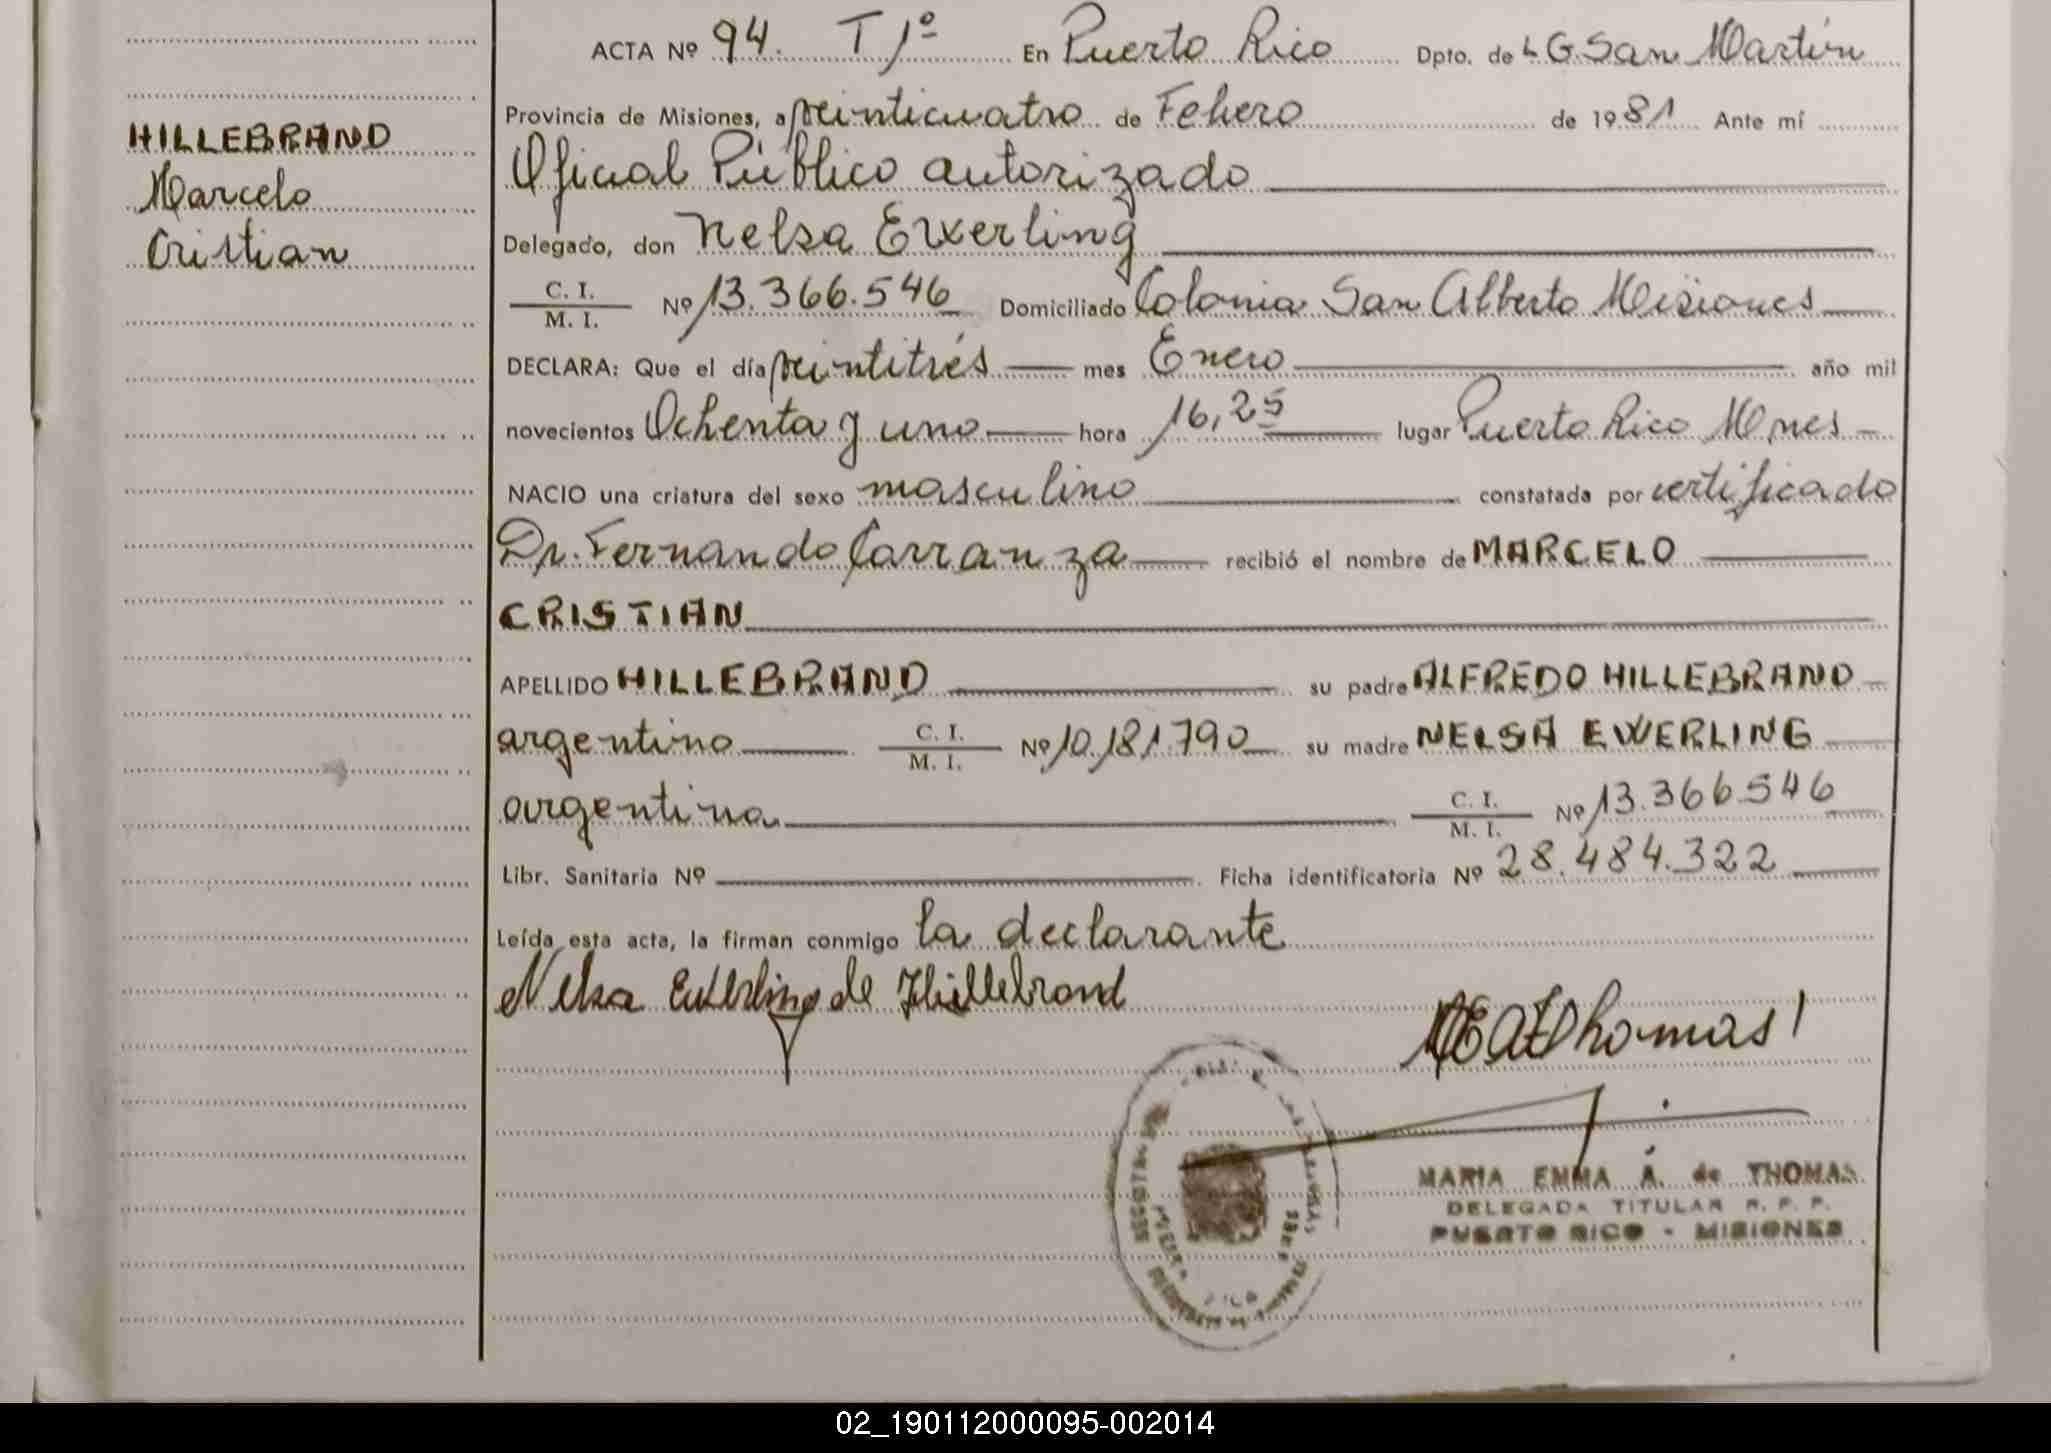 ACTA Nº 94. T 1º En Puerto Rico Dpto. de L G. San Martín
Provincia de Misiones, a veinticuatro de Febero de 1981 Ante mí
HILLEBRAND
Oficial Público autorizado
Marcelo
Cristian
Delegado, don Nelsa Ewerling
C. I.
M. I. Nº 13.366.546 Domiciliado Colonia San Alberto Misiones
DECLARA: Que el día veintitrés mes Enero año mil
novecientos Ochenta y uno hora 16,25 lugar Puerto Rico Mnes
NACIO una criatura del sexo masculino constatada por certificado
Dr. Fernando Carranza recibió el nombre de MARCELO
CRISTIAN
APELLIDO HILLEBRAND su padre ALFREDO HILLEBRAND
argentino C. I.
M. I. Nº 10.181.790 su madre NELSA EWERLING
argentina C. I.
M. I. Nº 13.366.546
Libr. Sanitaria Nº Ficha identificatoria Nº 28.484.322
Leída esta acta, la firman conmigo la declarante
Nelsa Ewerling de Hillebrand
Thomas
MARIA EMMA A. de THOMAS
DELEGADA TITULAR R. P. P.
PUERTO RICO - MISIONES
02_190112000095-002014